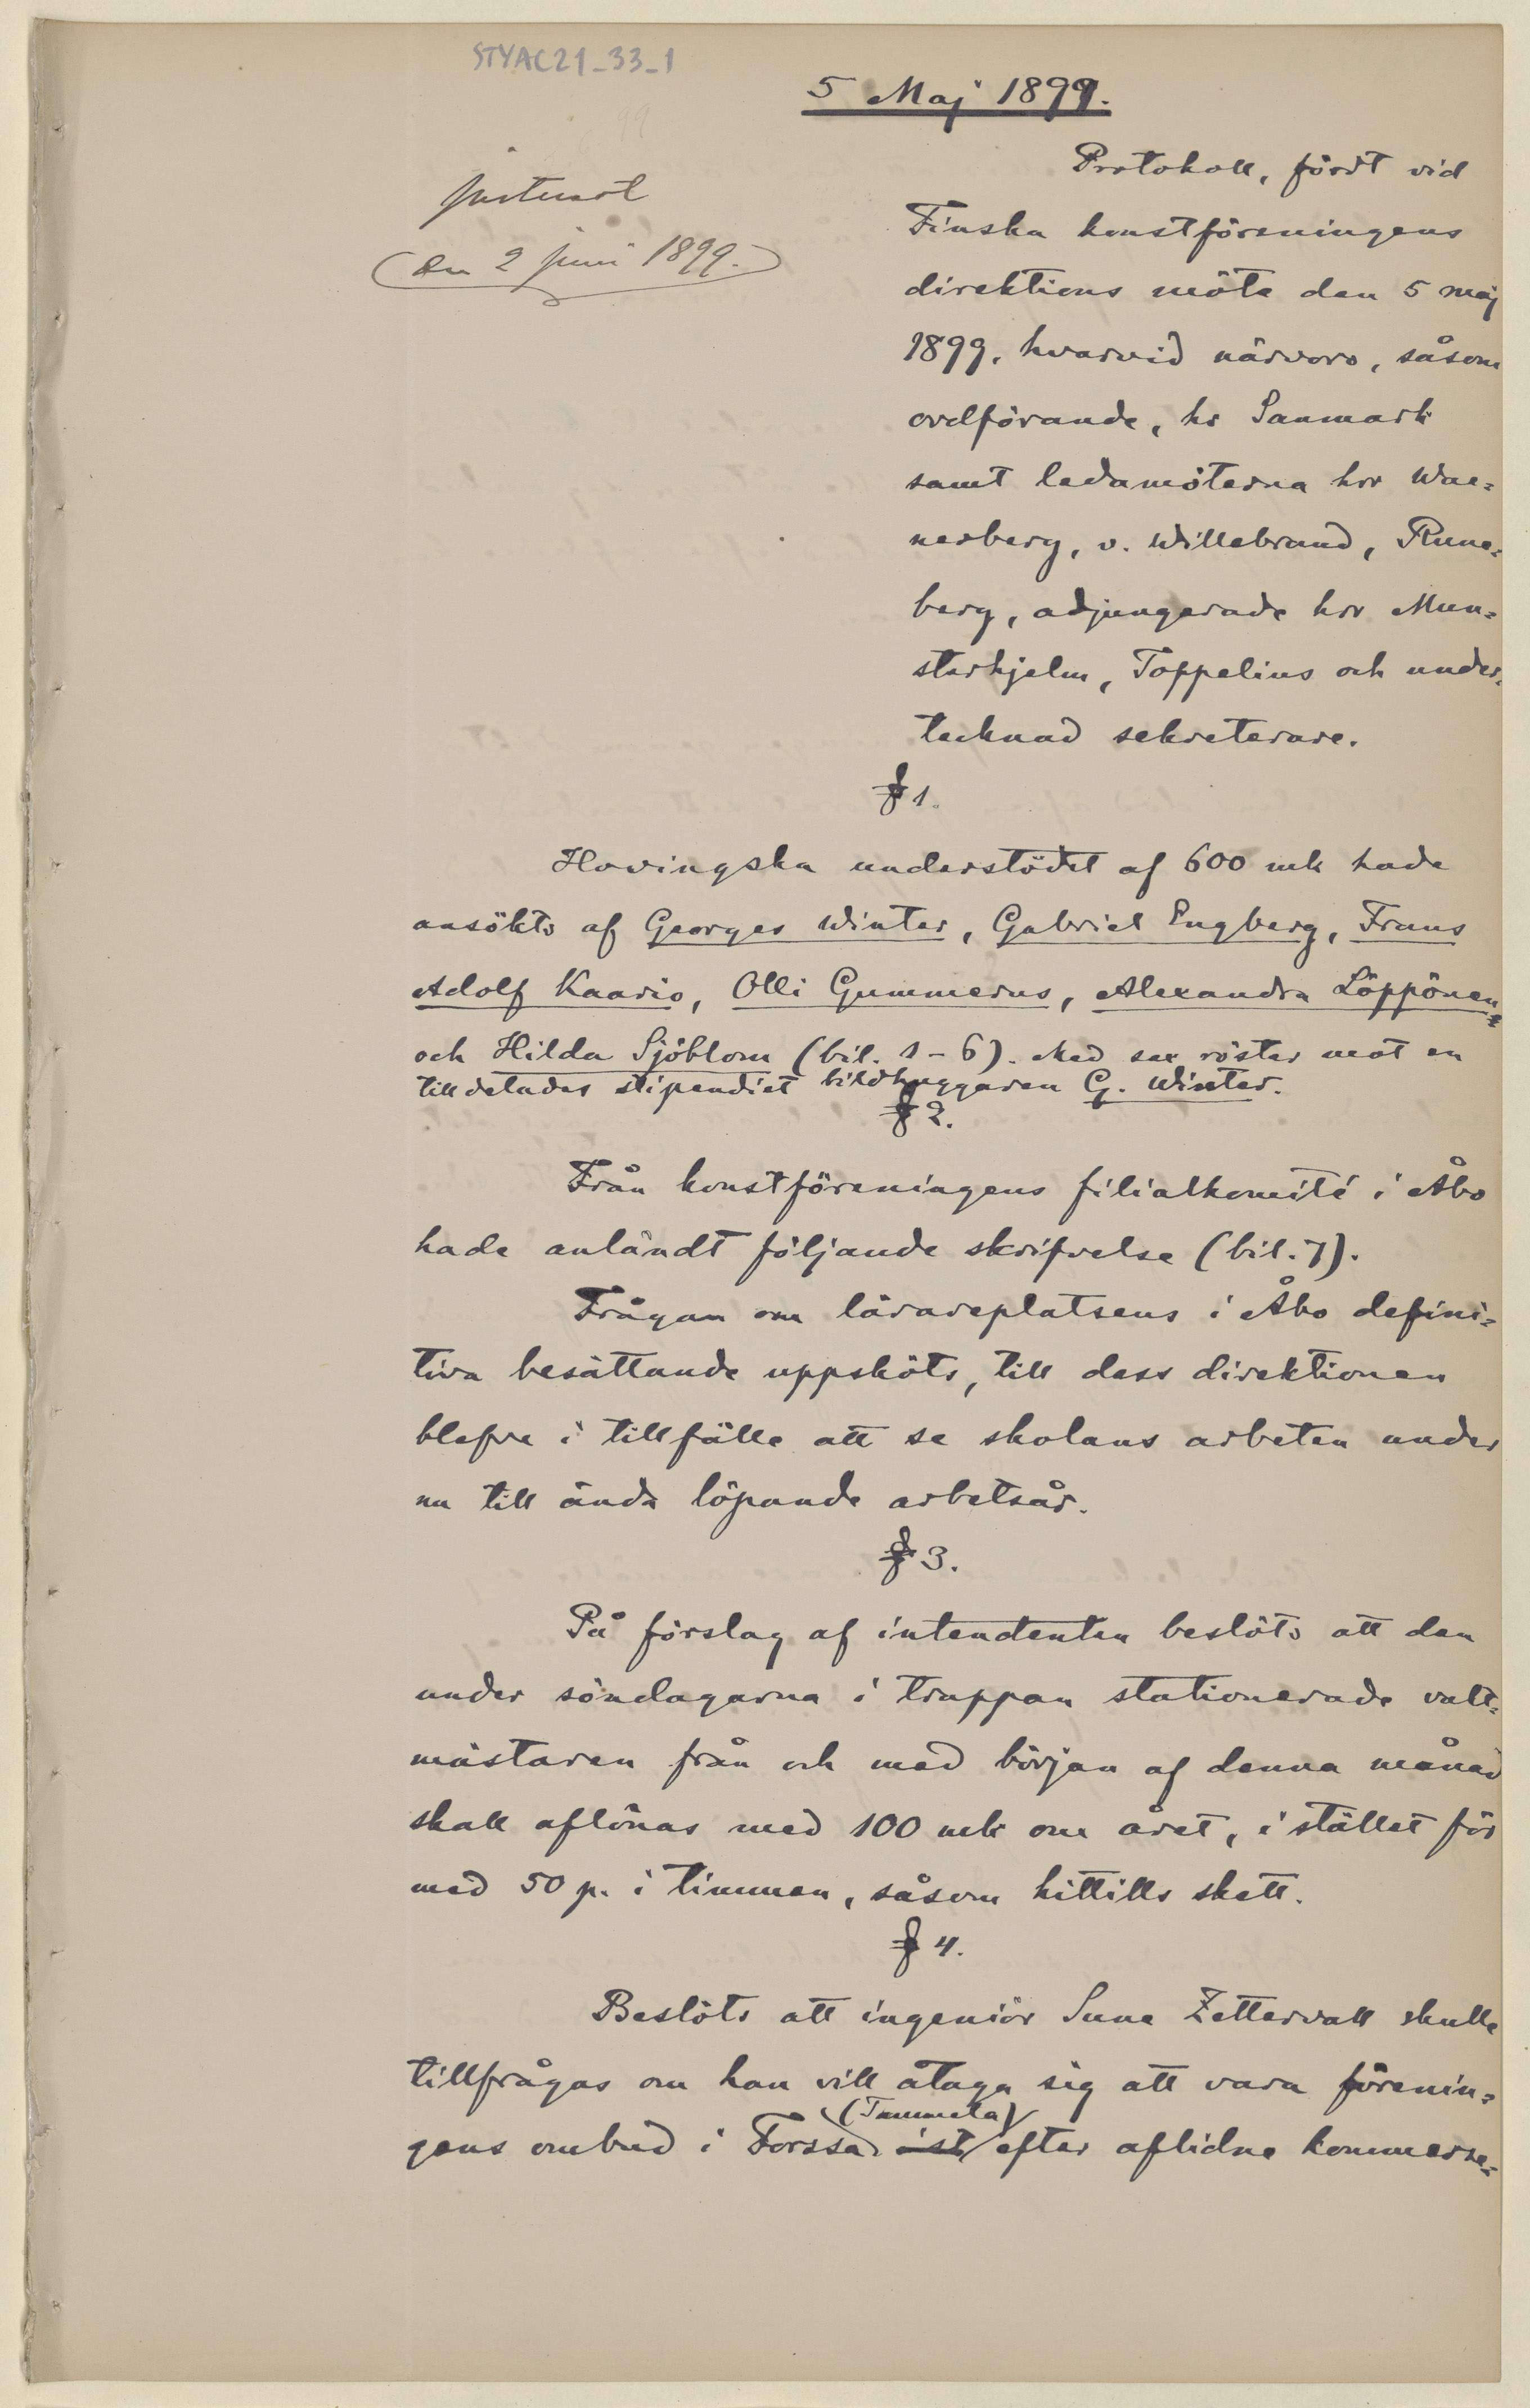 STYAC21_33_1
5 Maj 1899.
Justerat
den 2 juni 1899.
Protokoll, fördt vid
Finska konstföreningens
direktions möte den 5 maj
1899, hvarvid närvoro, såsom
ordförande, hr Sanmark
samt ledamöterna hrr Wae=
nerberg, v. Willebrand, Rune=
berg, adjungerade hrr Mun=
sterhjelm, Toppelius och under=
tecknad sekreterare.
§ 1.
Hovingska understödet af 600 mk hade
ansökts af Georges Winter, Gabriel Engberg, Frans
Adolf Kaario, Olli Gummerus, Alexandra Löppönen
och Hilda Sjöblom (bil. 1-6). Med sex röster mot en
tilldelades stipendiet bildhuggaren G. Winter.
§ 2.
Från konstföreningens filialkomité i Åbo
hade anländt följande skrifvelse (bil. 7).
Frågan om lärareplatsens i Åbo defini=
tiva besättande uppsköts, till dess direktionen
blefve i tillfälle att se skolans arbeten under
nu till ända löpande arbetsår.
§ 3.
På förslag af intendenten beslöts att den
under söndagarna i trappan stationerade vakt=
mästaren från och med början af denna månad
skall aflönas med 100 mk om året, i stället för
med 50 p. i timmen, såsom hittills skett.
§ 4.
Beslöts att ingeniör Sune Zettervall skulle
tillfrågas om han vill åtaga sig att vara förenin=
(Tammela)
gens ombud i Forssa ist efter aflidne kommerse=